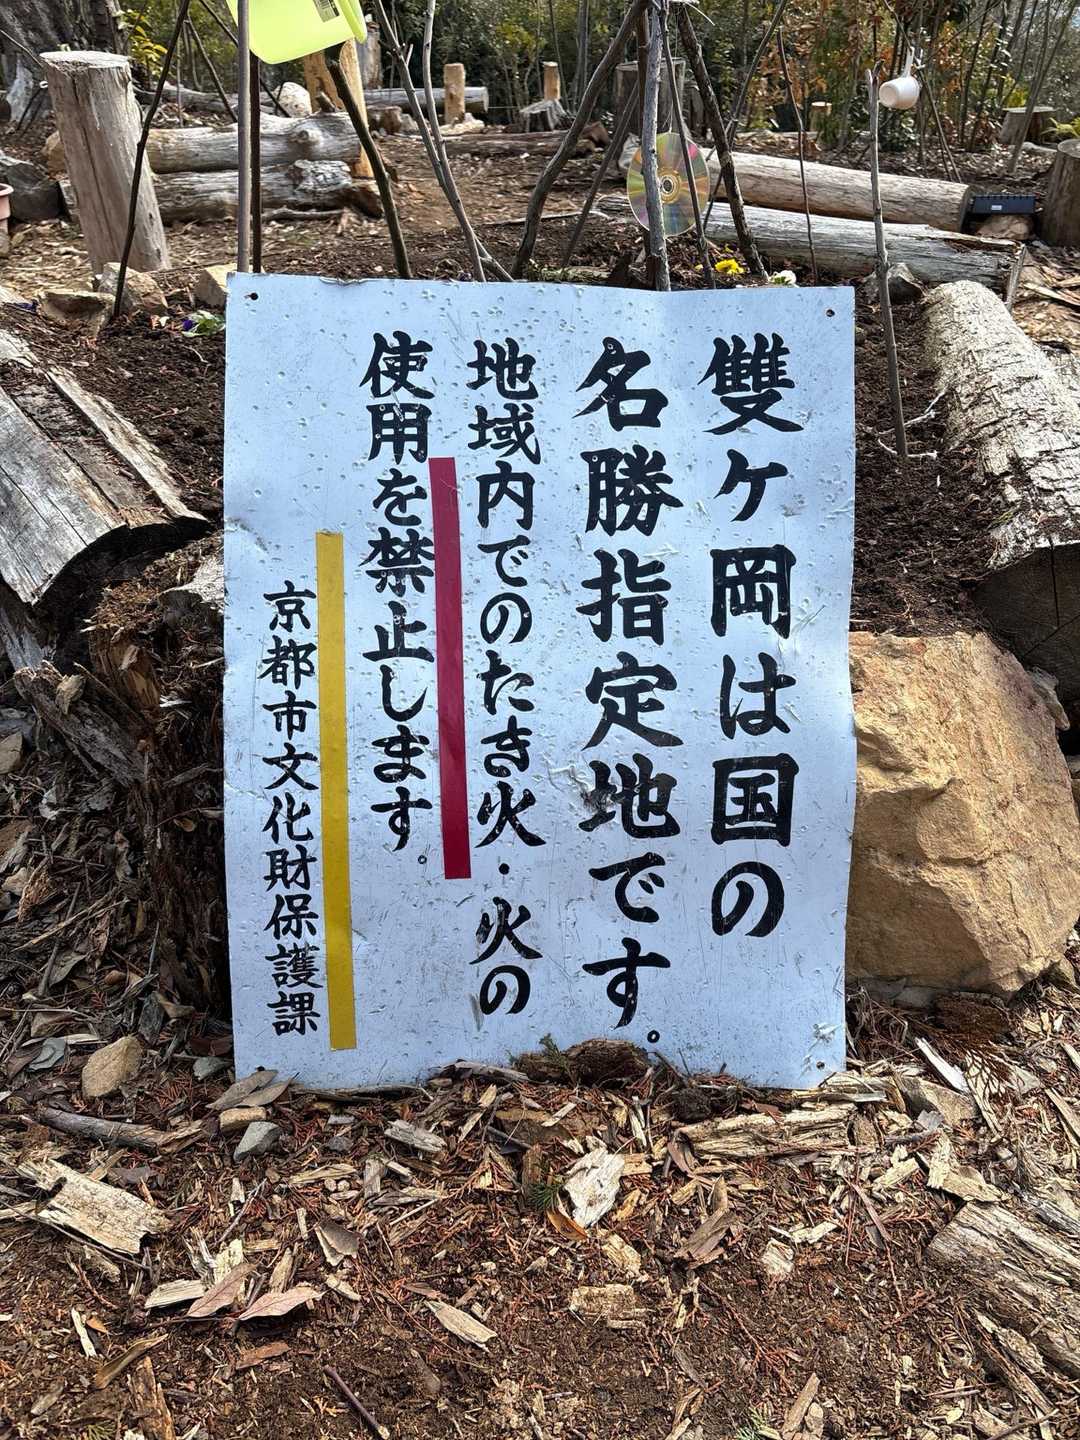 雙ケ岡は国の
名勝指定地です。
地域内でのたき火・火の
使用を禁止します。
京都市文化財保護課